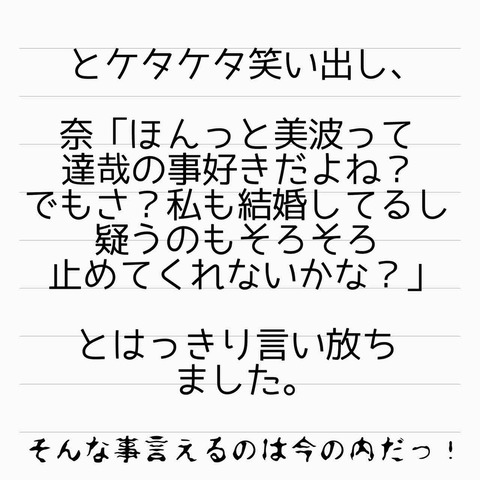 とケタケタ笑い出し、
奈「ほんっと美波って
達哉の事好きだよね?
でもさ?私も結婚してるし
疑うのもそろそろ
止めてくれないかな?」
とはっきり言い放ち
ました。
そんな事言えるのは今の内だっ!